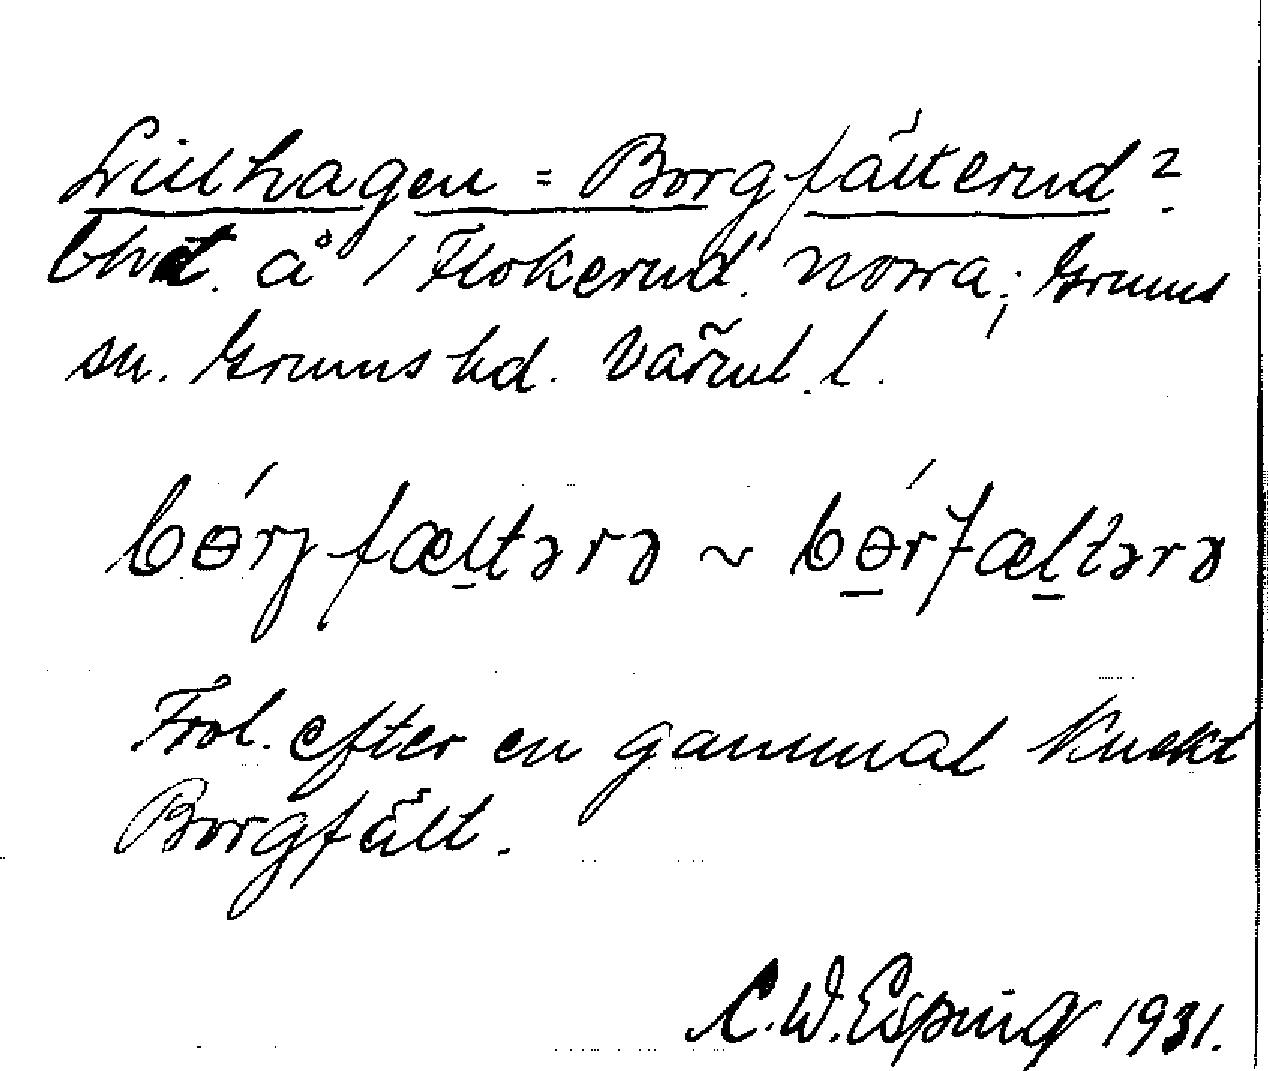 Lillhagen = Borgfälterud?
bht. å 1 Flokerud norra; Grums
sn. Grums hd. Värml. l.
bórgfæltərə ~ bórfæltərə
Trol. efter en gammal knekt
Borgfält.
C. W. Esping 1931.